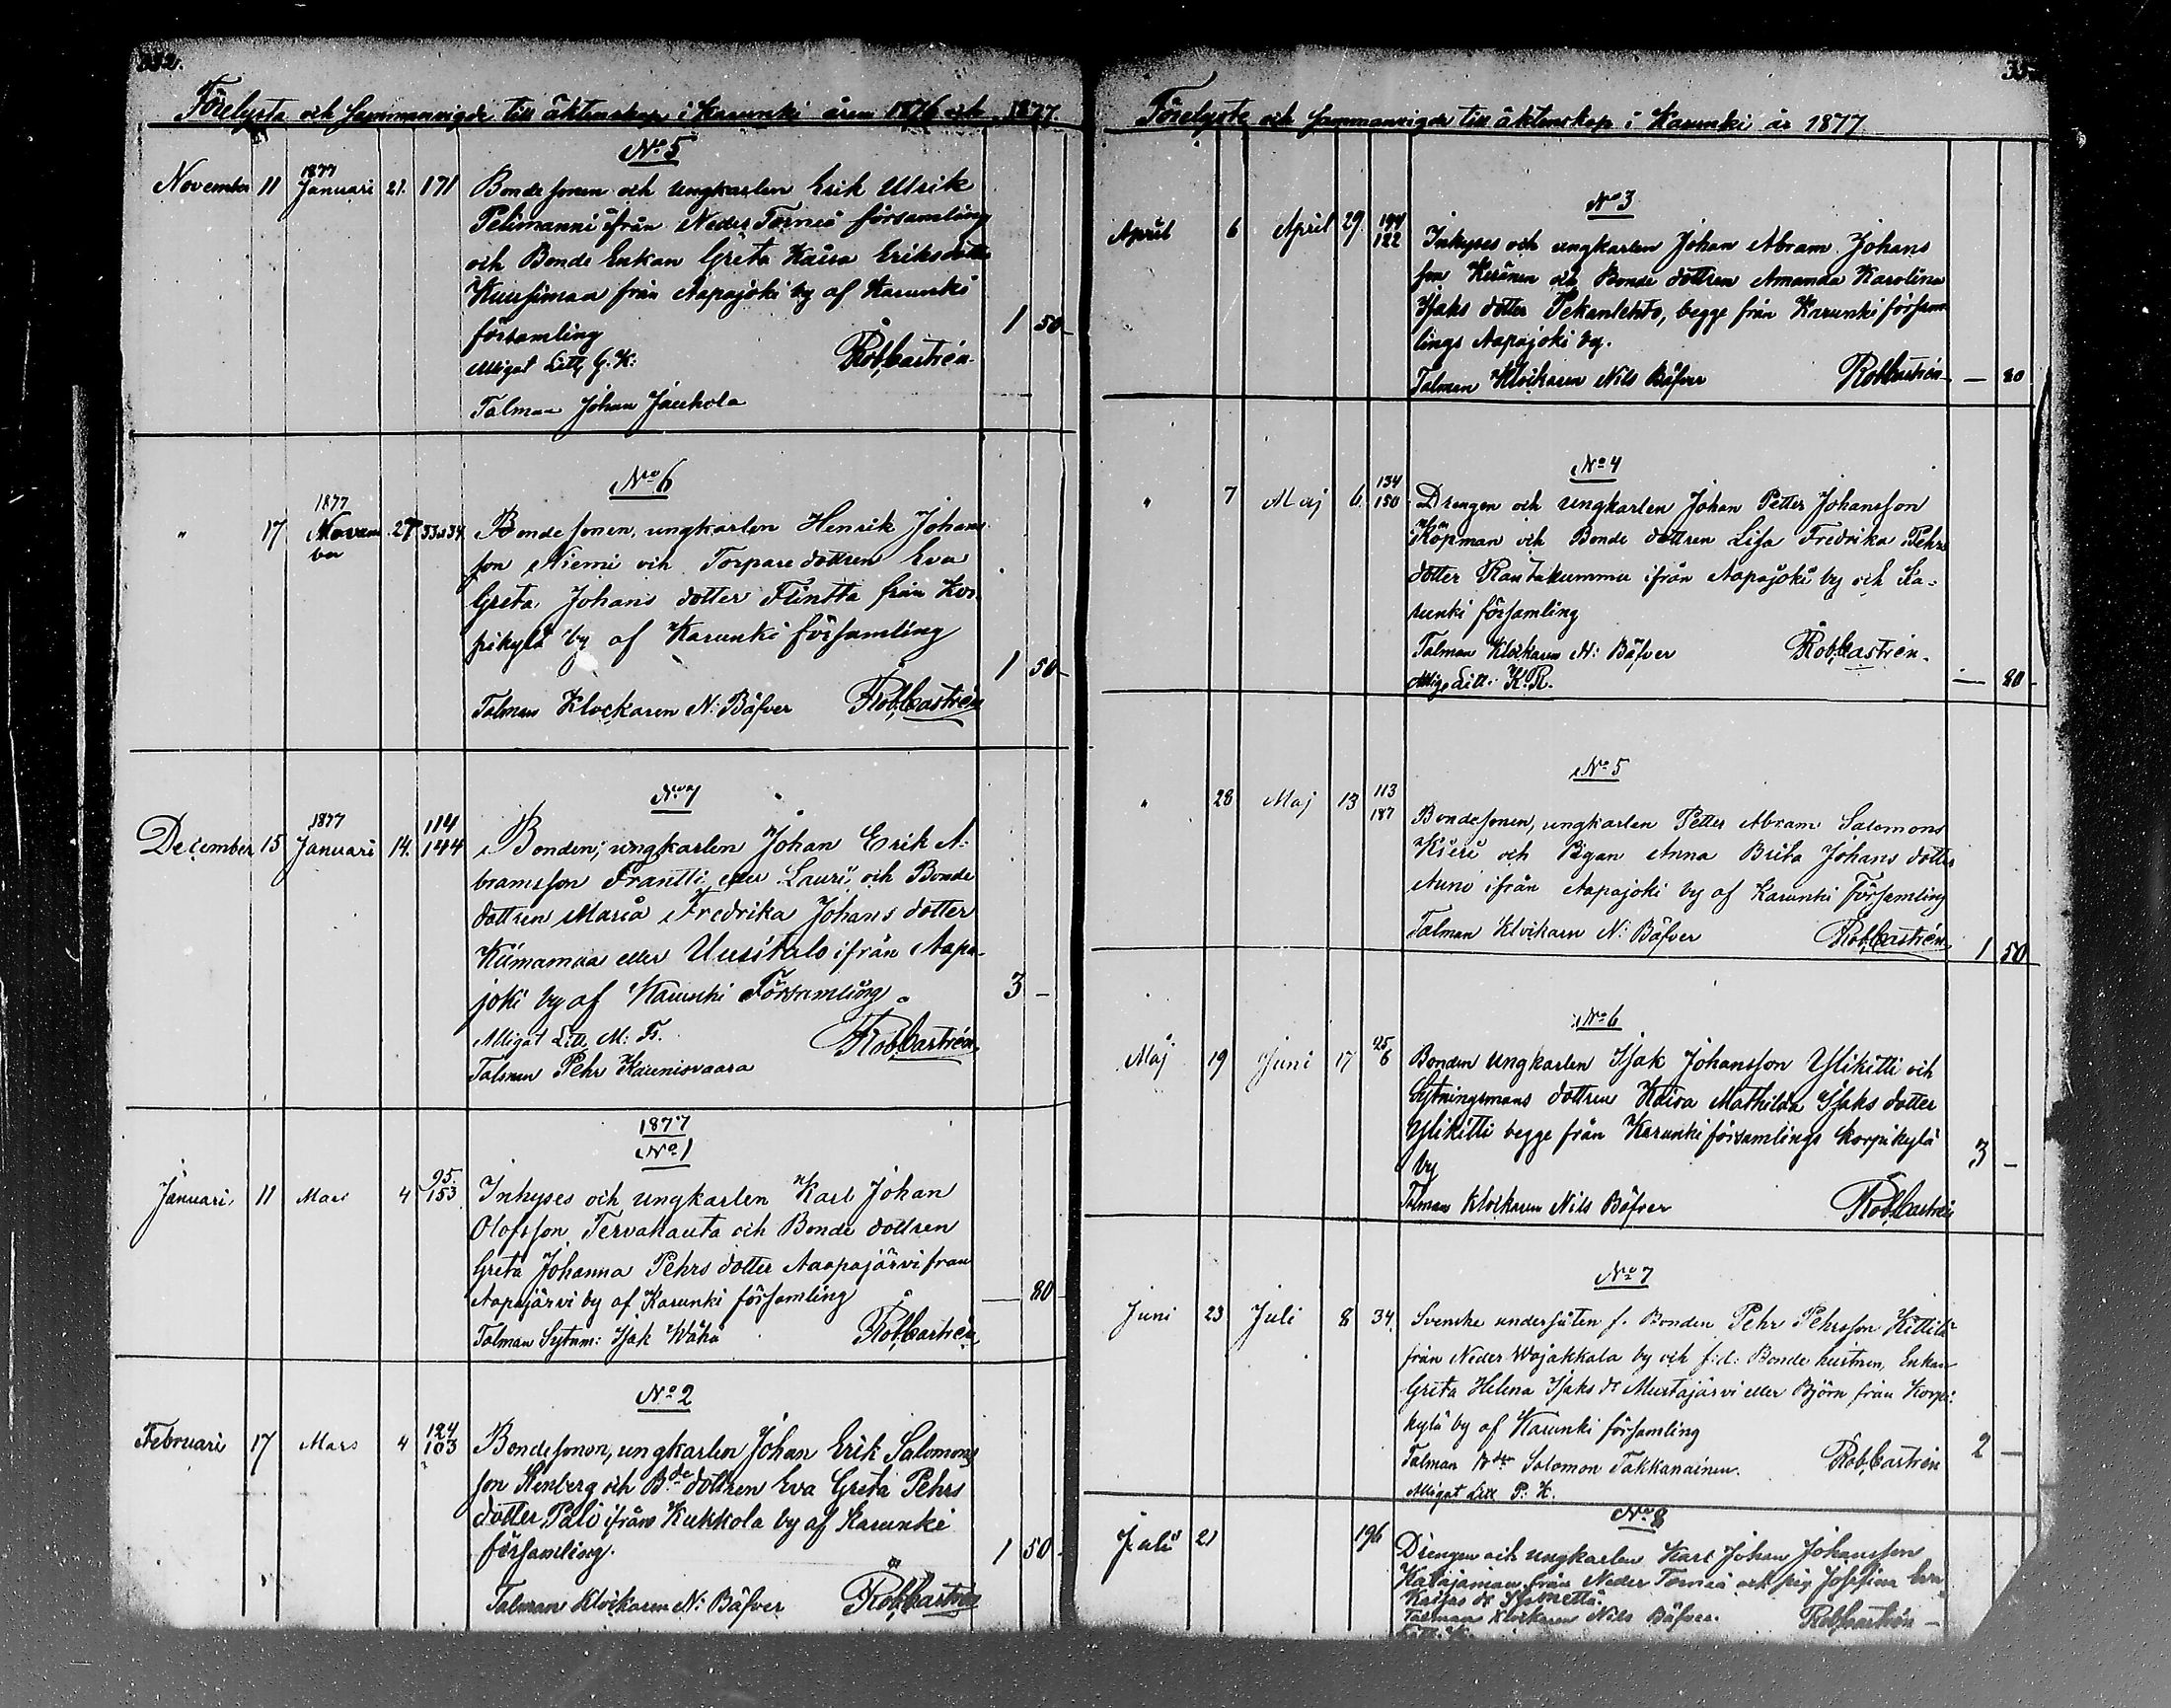 332.
Förelysta och Sammanvigde till äktenskap i Karunki åren 1876 och 1877.
No 5
November 11 1877 Januari 21. 171 Bonde sonen och ungkarlen Erik Ulrik
Pelimanni ifrån Neder Torneå församling
och Bonde Enkan Greta Kaisa Eriksdotter
Kuusimaa från Aapajoki by af Karunki
församling 1 50
Alligat Litt. G. K: Rob. Castrén
Talman Johan Jauhola
No 6
" 17 1877 Novem
ber 27 33 o 34 Bonde sonen, ungkarlen Henrik Johans
son Niemi och Torpare dottren Eva
Greta Johans dotter Flintta från Kor-
pikylä by af Karunki församling
1 50
Talman Klockaren N: Bäfver Rob. Castrén
No 7
December 15 1877 Januari 14. 114 144 Bonden, ungkarlen Johan Erik A-
bramsson Frantti eller Lauri och Bonde
dottren Maria Fredrika Johans dotter
Kiimamaa eller Uusitalo ifrån Aapa-
joki by af Karunki Församling. 3 —
Alligat Litt. M: F. Rob. Castrén
Talman Pehr Kaunisvaara
1877
No 1
Januari 11 Mars 4 95. 153 Inhyses och ungkarlen Karl Johan
Olofsson Tervakauta och Bonde dottren
Greta Johanna Pehrs dotter Aapajärvi från
Aapajärvi by af Karunki församling — 80
Talman Sytnm: Isak Wähä Rob. Castrén
No 2
Februari 17 Mars 4 124 103 Bondesonen, ungkarlen Johan Erik Salomons
son Stenberg och Bde dottren Eva Greta Pehrs
dotter Palo ifrån Kukkola by af Karunki
församling. 1 50
Talman Klockaren N: Bäfver Rob. Castrén
Förelyste och Sammanvigde till äktenskap i Karunki år 1877
No 3
April 6 April 29. 122 Inhyses och ungkarlen Johan Abram Johans
son Keränen och Bonde dottren Amanda Karolina
Isaks dotter Pekanlehto, begge från Karunki försam
lings Aapajoki by.
Talman Klockaren Nils Bäfver Rob Castrén — 80
No 4
" 7 Maj 6. 134 150 Drengen och ungkarlen Johan Petter Johansson
Köpman och Bonde dottren Lisa Fredrika Pehrs
dotter Rautakummu ifrån Aapajoki by och Ka-
runki församling
Talman Klockaren N: Bäfver Rob. Castrén.
Allig. Litt: K. R. — 80
No 5
" 28 Maj 13 113 187 Bondesonen, ungkarlen Petter Abram Salomons
Kieri och Pigan Anna Brita Johans dotter
Auno ifrån Aapajoki by af Karunki Församling
Talman Klockaren N: Bäfver Rob. Castrén 1 50
No 6
Maj 19 Juni 17 25 6 Bonden ungkarlen Isak Johansson Ylikitti och
Sytningsmans dottren Kaisa Mathilda Isaks dotter
Ylikitti begge från Karunki församlings Korpikylä
by 3 —
Talman Klockaren Nils Bäfver Rob. Castrén
No 7
Juni 23 Juli 8 34. Svenske undersåten f. Bonden Pehr Pehrsson Kittilä
från Neder Wojakkala by och f:d: Bonde hustrun, Enkan
Greta Helena Isaks dr Mustajärvi eller Björn från Korpi-
kylä by af Karunki församling
Talman Solomon Takkanainen. Rob. Castrén 2 —
Alligat Litt P: K.
No 8
Juli 21 196 Drengen och ungkarlen Karl Johan Johansson
från Neder Torneå och pig Josefina Eva
Kaisas dr
Talman Klockaren Nils Bäfver. Rob Castrén —